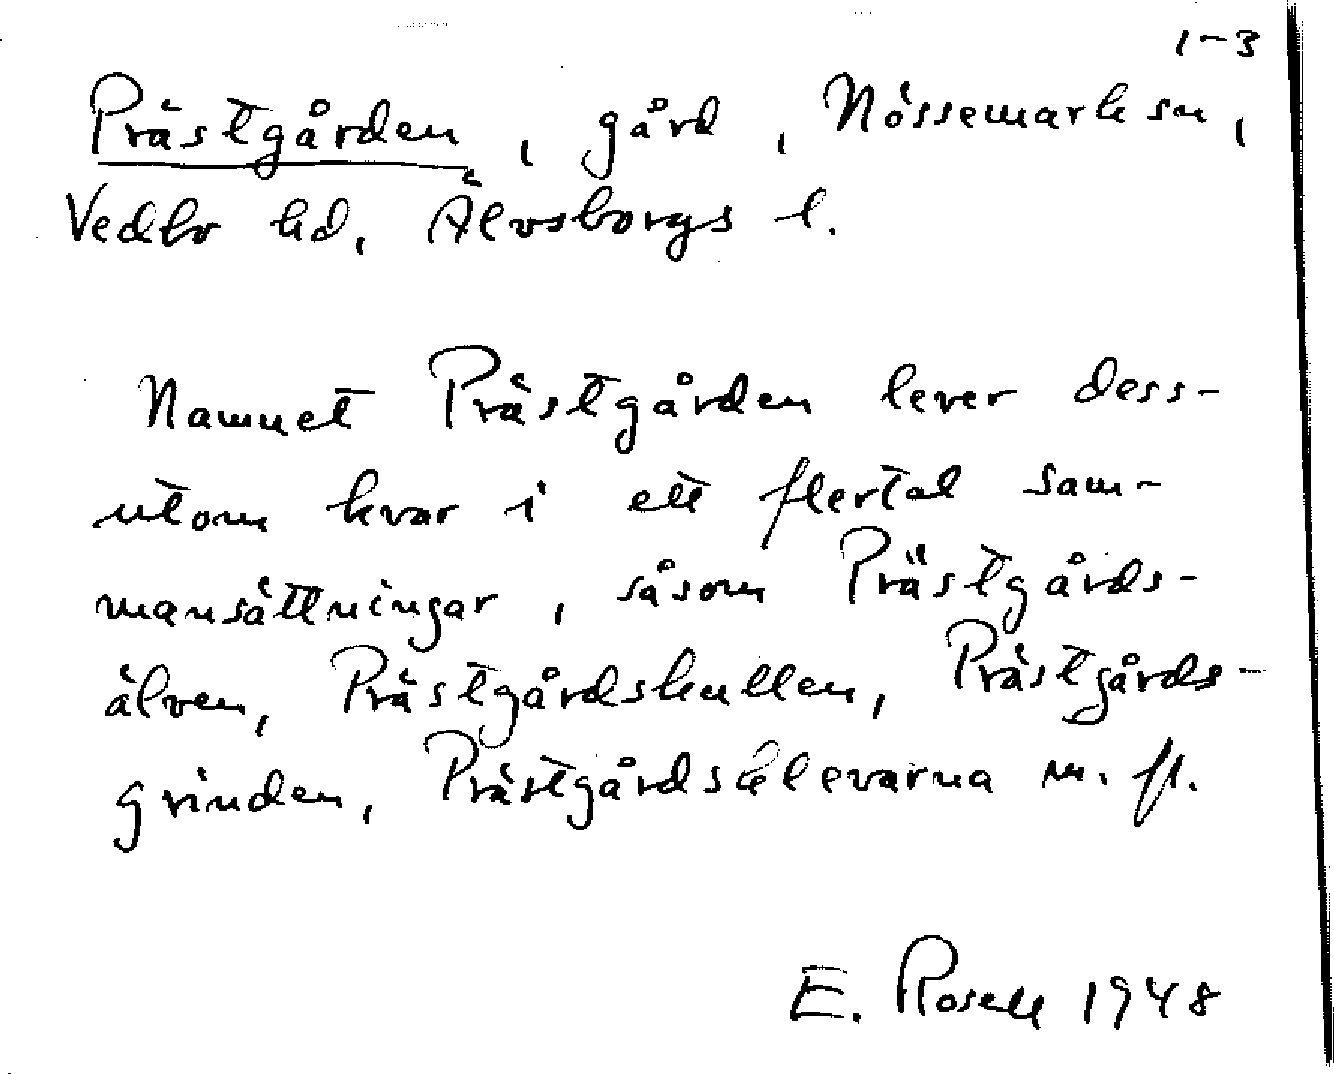 1-3
Prästgården, gård, Nössemark sn,
Vedbo hd, Älvsborgs l.
Namnet Prästgården lever dess-
utom kvar i ett flertal sam-
mansättningar, såsom Prästgårds-
älven, Prästgårdskullen, Prästgårds-
grinden, Prästgårdsklevarna m. fl.
E. Rosell 1948